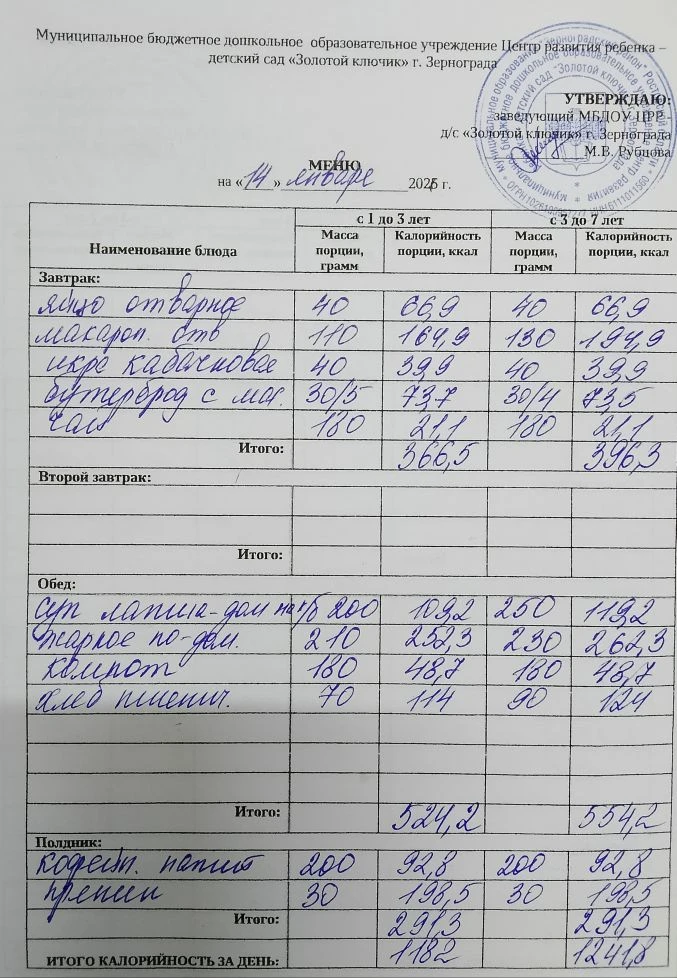 Муниципальное бюджетное дошкольное образовательное учреждение Центр развития ребенка –
детский сад «Золотой ключик» г. Зернограда
УТВЕРЖДАЮ:
заведующий МБДОУ ЦРР
д/с «Золотой ключик» г. Зернограда
М.В. Рубцова
МЕНЮ
на «14» январе 2026 г.
Наименование блюда с 1 до 3 лет с 3 до 7 лет
Масса порции, грамм Калорийность порции, ккал Масса порции, грамм Калорийность порции, ккал
Завтрак:
яйцо отварное 40 66,9 40 66,9
макарон. отв 110 164,9 130 194,9
икра кабачковая 40 39,9 40 39,9
бутерброд с мас. 30/5 73,7 30/4 73,5
чай 180 21,1 180 21,1
Итого: 366,5 396,3
Второй завтрак:
Итого:
Обед:
суп лапша-дом на к/б 200 109,2 250 119,2
жаркое по-дом. 210 252,3 230 262,3
компот 180 48,7 180 48,7
хлеб пшенич. 70 114 90 124
Итого: 524,2 554,2
Полдник:
кофейн. напит 200 92,8 200 92,8
пряник 30 198,5 30 198,5
Итого: 291,3 291,3
ИТОГО КАЛОРИЙНОСТЬ ЗА ДЕНЬ: 1182 1241,8